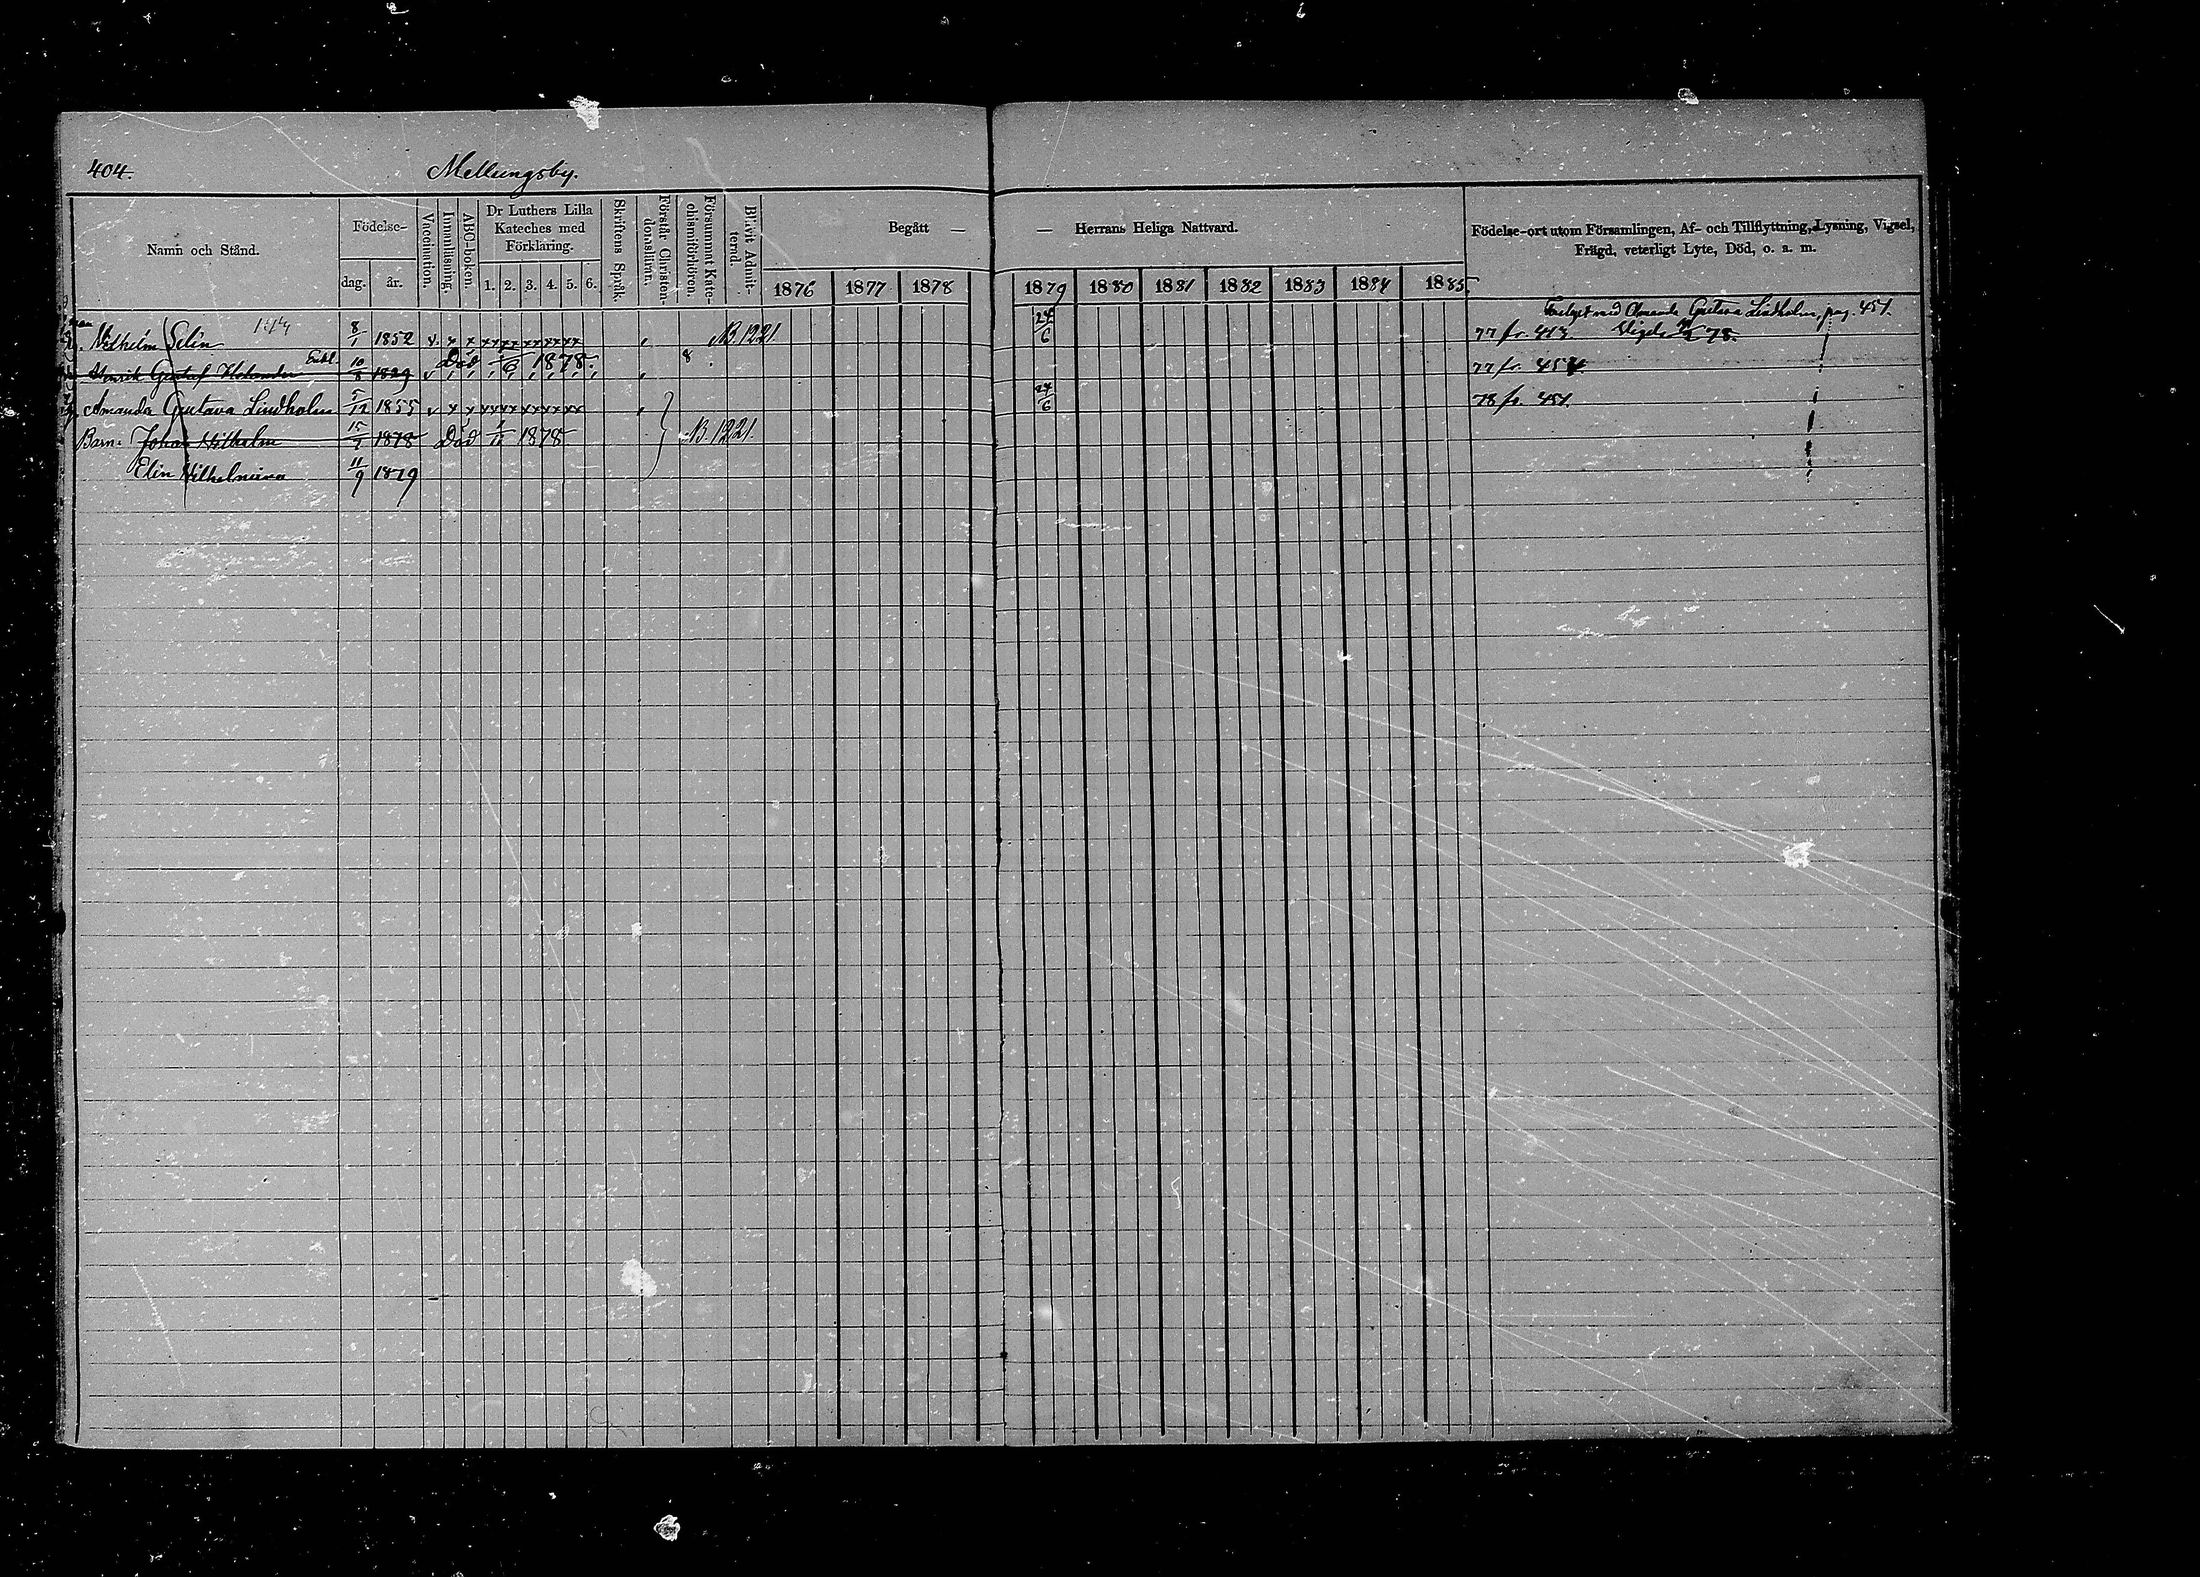 404.
Mellungsby.
Namn och Stånd.
Födelse-
dag.
år.
Vaccination.
Innanläsning.
ABC-boken.
Dr Luthers Lilla
Kateches med
Förklaring.
1. 2. 3. 4. 5. 6.
Skriftens Språk.
Förstår Christen-
domsläran.
Försummat Kate-
chismiförhören.
Blivit Admit-
terad.
Begått —
— Herrans Heliga Nattvard.
1876 1877 1878
1879 1880 1881 1882 1883 1884 1885
Födelse-ort utom Församlingen, Af- och Tillflyttning, Lysning, Vigsel,
Frägd, veterligt Lyte, Död, o. a. m.
Amanda Gustava Lindholm, pag. 451.
Wilhelm Selin 8/1 1852 v. x x xx xx xx xx xx B. 1221 24/6 77 fr. 413. Vigde 78.
Enkl.
Henrik Gustaf 10/8 1829 v Död 1878. 8 77 fr. 454
Amanda Gustava Lindholm 5/12 1855 v x x xx xx xx xx xx 24/6 78 fr. 451.
Barn: Johan Wilhelm 15/7 1878 Död 1878 B. 1221.
Elin Wilhelmina 11/9 1879